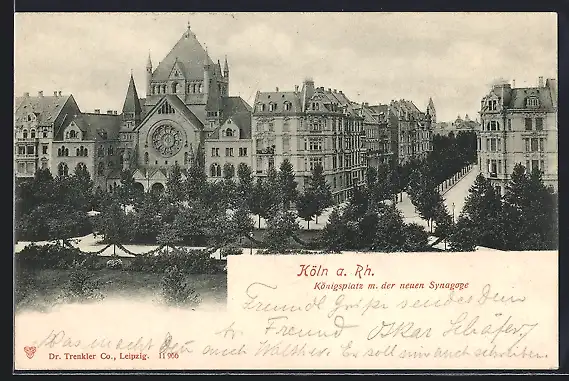 Köln a. Rh.
Königsplatz m. der neuen Synagoge
Freundl. Grüße sendet Dein
Freund Oskar Schäfer,
Was macht Dein auch Walther. Er soll mir auch schreiben
Dr. Trenkler Co., Leipzig. 11 906